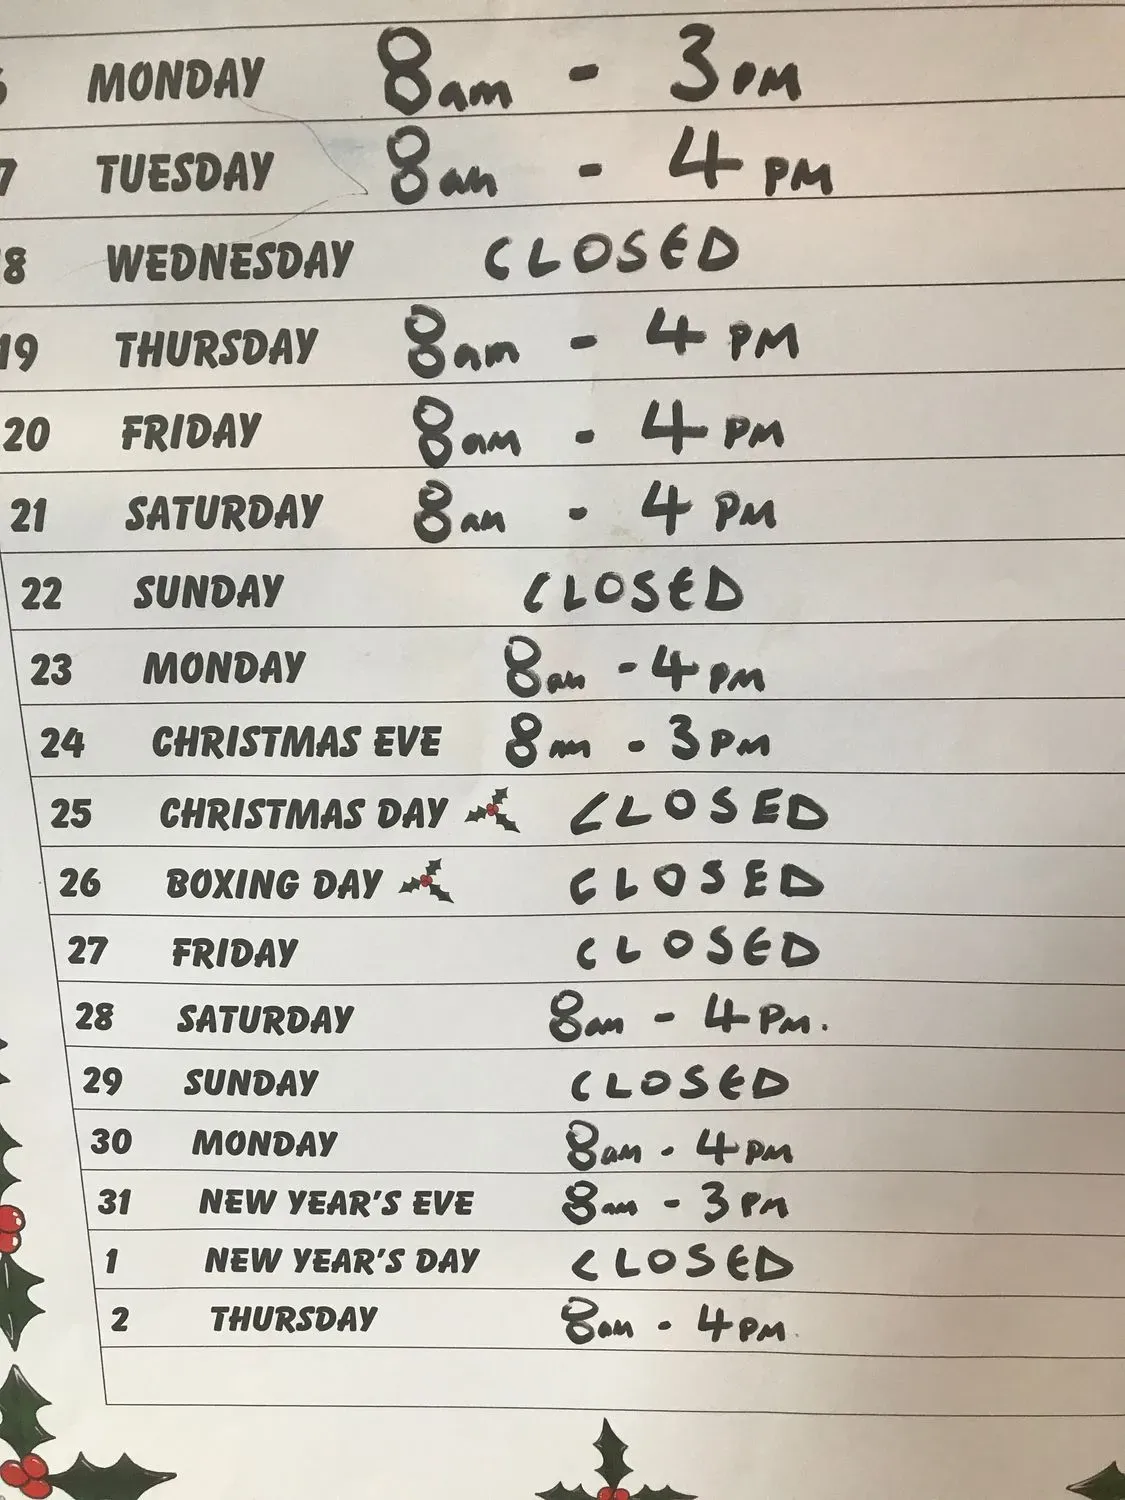 6 MONDAY 8am - 3PM
7 TUESDAY 8am - 4PM
18 WEDNESDAY CLOSED
19 THURSDAY 8am - 4PM
20 FRIDAY 8am - 4PM
21 SATURDAY 8am - 4PM
22 SUNDAY CLOSED
23 MONDAY 8am - 4PM
24 CHRISTMAS EVE 8am - 3PM
25 CHRISTMAS DAY CLOSED
26 BOXING DAY CLOSED
27 FRIDAY CLOSED
28 SATURDAY 8am - 4PM.
29 SUNDAY CLOSED
30 MONDAY 8am - 4PM
31 NEW YEAR'S EVE 8am - 3PM
1 NEW YEAR'S DAY CLOSED
2 THURSDAY 8am - 4PM.